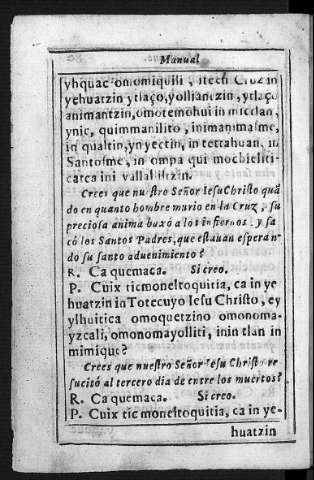 Manual
yhquac omomiquili, itech Cruz in
yehuatzin ytlaço, yolliantzin, ytlaço
animantzin, omotemohui in mictlan,
ynic, quimmanilito, inimanimasme,
in qualtin, yn yectin, in tettahuan, in
Santosme, in ompa qui mochielti-
catca ini vallaliltzin.
Crees que nuestro Señor Iesu Christo quã
do en quanto hombre murio en la Cruz, su
preciosa anima baxó a los infiernos y sa
có los Santos Padres, que estauan esperan
do su santo aduenimiento?
R. Ca quemaca. Si creo.
P. Cuix ticmoneltoquitia, ca in ye
huatzin in Totecuyo Iesu Christo, ey
ylhuitica omoquetzino omonoma-
yzcali, omonomayolliti, inin tlan in
mimique?
Crees que nuestro Señor Iesu Christo re
sucitó al tercero dia de entre los muertos?
R. Ca quemaca. Si creo.
P. Cuix tic moneltoquitia, ca in ye-
huatzin